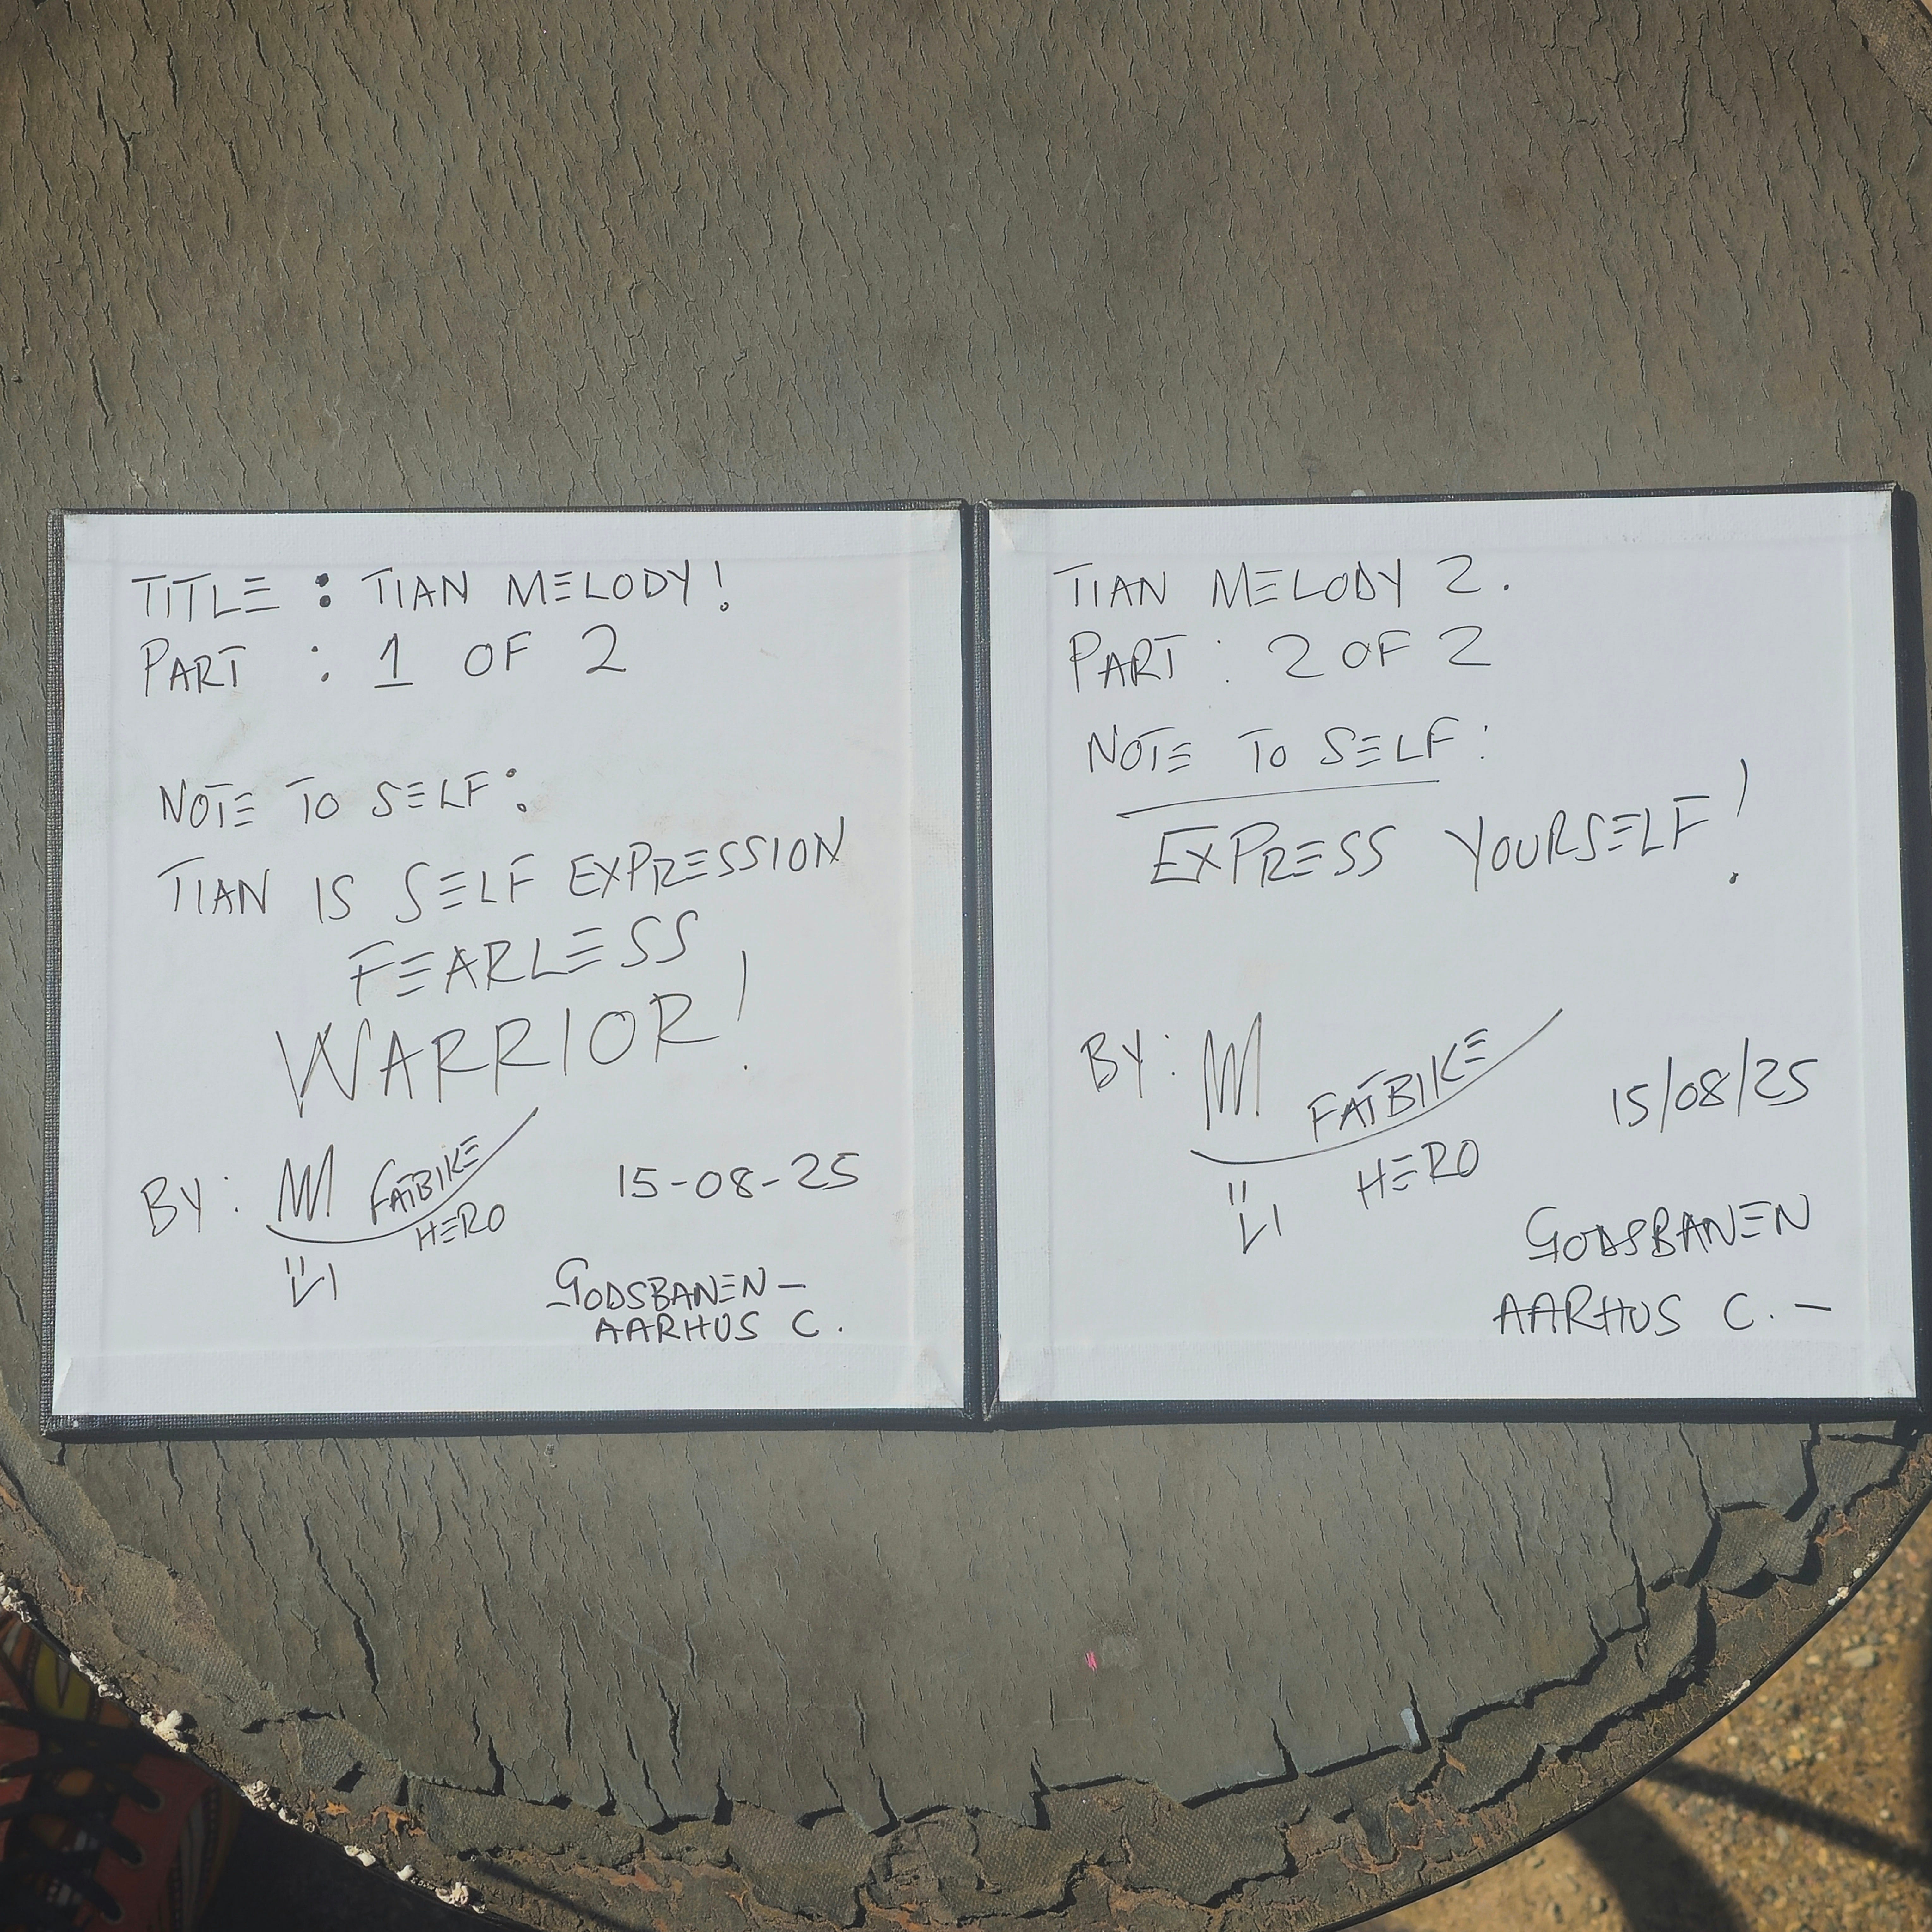 TITLE : TIAN MELODY!
PART : 1 OF 2
NOTE TO SELF:
TIAN IS SELF EXPRESSION
FEARLESS
WARRIOR!
BY: FATBIKE
HERO
15-08-25
GODSBANEN -
AARHUS C.
TIAN MELODY 2.
PART: 2 OF 2
NOTE TO SELF:
EXPRESS YOURSELF!
BY: FATBIKE
HERO
15/08/25
GODSBANEN
AARHUS C. -